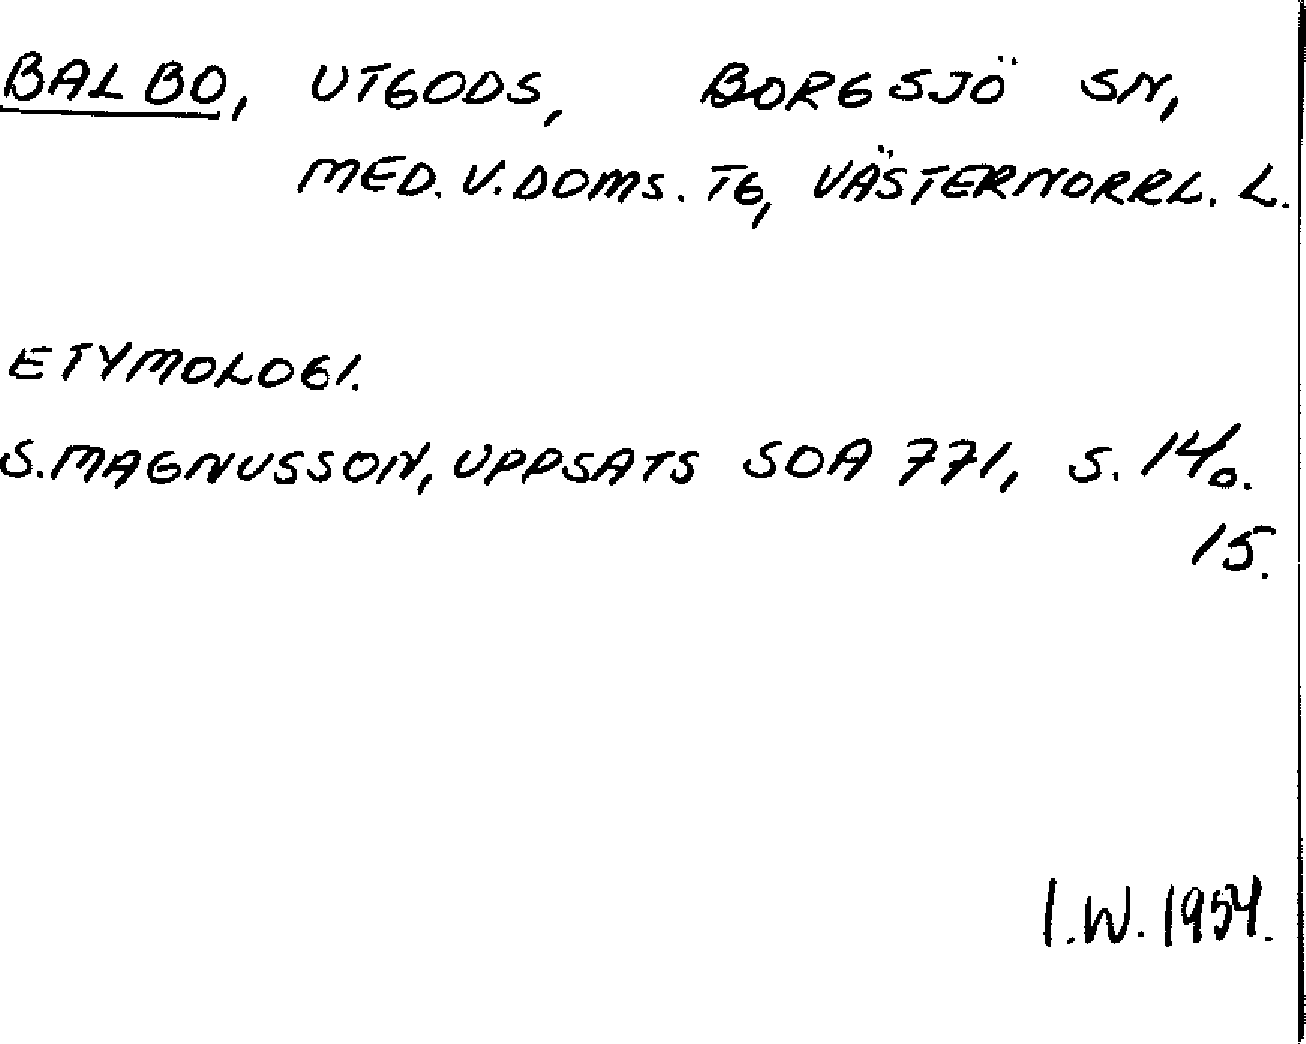 BALBO, UTGODS, BORGSJÖ SN,
MED. V. DOMS. TG, VÄSTERNORRL. L.
ETYMOLOGI.
S. MAGNUSSON, UPPSATS SOA 771, S. 14 o.
15.
I.W. 1954.